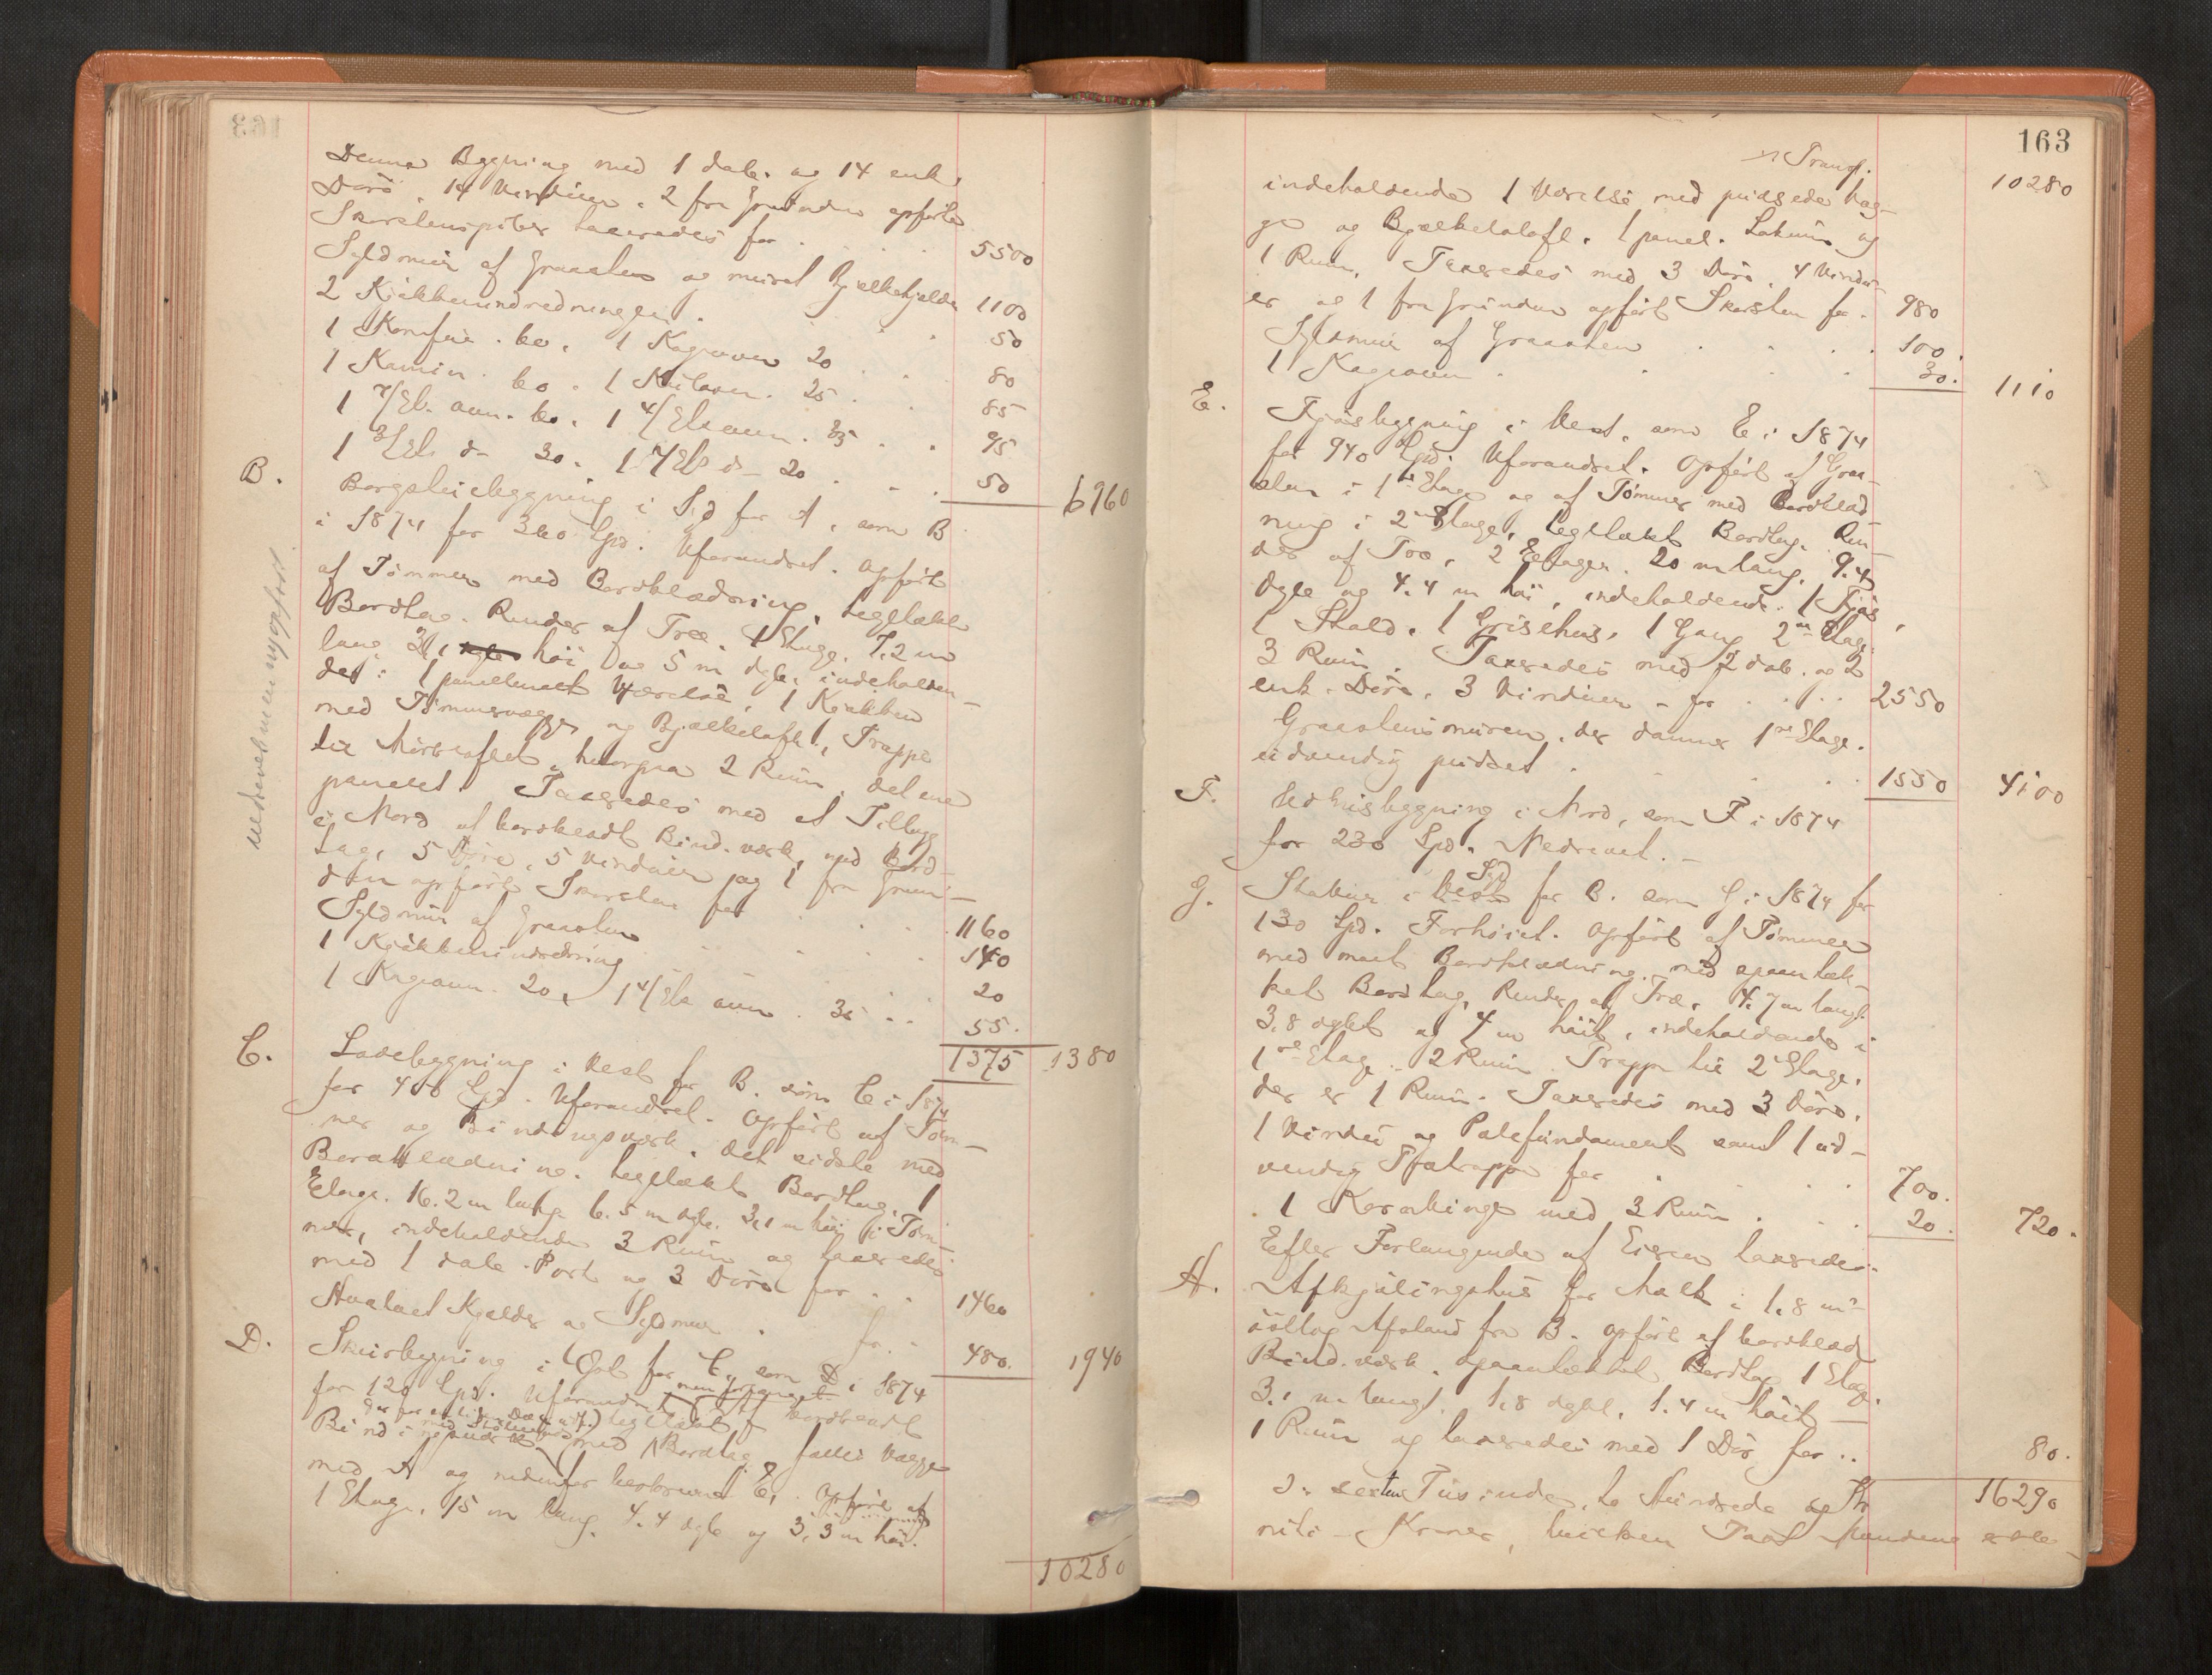 Denne Bygning med 1 dob. og 14 enk.
Døre, 14 Vinduer, 2 fra Grunden opførte
Skorstenspiber taxeredes for . . . 5500
Syldmur af Graasten og muret Bjælkekjelder 1100
2 Kjøkkenindredninger . . . 50
1 Komfur . 60, 1 Kogeovn 20 . . 80
1 Kamin . 60 . 1 Kulovn . 25 . . 85
1 7/Etb. ovn . 60 . 1 4/Etb ovn . 35 . . 95
1 3/Etb do 30 . 1 4/Etb do 20 . . . 50 6960
B. Borgstuebygning i Syd for A, som B
i 1874 for 360 Spd. Uforandret. Opført
af Tømmer med Bordklædning, tegllakt
Bordtag. Render af Træ. 1 Etage. 7.2 m
lang 3.1 høi og 5 m dyb, indeholden-
des: 1 panellmalt Værelse, 1 Kjøkken
med Tømmervægge og Bjælkeloft, Trappe
til Mørkloftet, hvorpaa 2 Rum, det ene
panelet. Taxeredes med et Tilbygg
i Nord af bordklædt Bind.værk, med Bord-
tag, 5 Døre, 5 Vinduer og 1 fra Grun-
den opført Skorsten for . . . 1160
Syldmur af Graasten . . . 140
1 Kjøkkenindredning . . . 20
1 Kogeovn . 20, 1 4/Etb ovn . 35 . . 55.
1375 1380
C. Ladebygning i Vest for B. som C i 1874
for 400 Spd. Uforandret. Opført af Tøm-
mer og Bindingsværk, det sidste med
Bordklædning. tegltækt Bordtag, 1
Etage. 16.2 m lang 6.5 m dyb. 3,1 m høi i Tøm-
mer, indeholdende 3 Rum og taxeredes
med 1 dob. Port og 3 Døre for . . 1460
Hvælvet Kjelder og Syldmur . for . . 480. 1940
D. Skurbygning i Øst for C, som D i 1874
for 120 Spd. Uforandret men forlænget af bordklædt
Bindingsværk med teglteket Bordtag, fælles Vægge
med A og nedenfor beskrevne E, Opført af
1 Etage, 15 m lang, 4.4 dyb og 3,3 m høi.
10280
nedrevet uden nyopført.
163
Transp. 10280
indeholdende 1 Værelse med pudsede Væg-
ge og Bjælkeloft, 1 panel. Lokum og
1 Rum. Taxeredes med 3 Døre, 4 Vindu-
er og 1 fra Grunden opført Skorsten for . 980
Syldmur af Graasten . . . . 100.
1 Kogeovn . . . . 30. 1110
E. Fjøsbygning i Vest, som E i 1874
for 940 Spd. Uforandret. Opført af Graa-
sten i 1ste Etage og af Tømmer med Bordklæd-
ning i 2den Etage, teglteket Bordtag. Ren-
der af Træ, 2 Etager. 20 m lang, 9.4
dyb og 4.4 m høi, indeholdende: 1 Fjøs,
1 Stald, 1 Grisehus, 1 Gang 2den Etage.
3 Rum. Taxeredes med 2 dob. og 2
enk. Døre, 3 Vinduer for . . . 2550
Graastensmuren, der danner 1ste Etage,
udvendig pudset . . . 1550 4100
F. Vedhusbygning i Nord, som F i 1874
for 230 Spd. Nedrevet. -
G. Stabur i Syd for B. som G i 1874 for
130 Spd. Forhøiet. Opført af Tømmer
med malt Bordklædning, med spaantæk-
ket Bordtag, Render af Træ, 4.7 m langt
3.8 dybt og 4 m høit, indeholdende i
1ste Etage 2 Rum. Trappe til 2den Etage,
der er 1 Rum. Taxeredes med 3 Døre,
1 Vindu og Pælefundament samt 1 ud-
vendig Trætrappe for . . . 700.
1 Kornbinge med 3 Rum . . . 20. 720.
Efter Forlangende af Eieren taxeredes:
H. Afkjølingshus for Melk i 1,8 m
østlig Afstand fra B. Opført af bordklædt
Bind.værk, spaantækket Bordtag 1 Etage.
3.1 m langt, 1,8 dybt, 1.4 m høit -
1 Rum og taxeredes med 1 Dør for . . 80.
16290
er sexten Tusinde, to Hundrede og
niti Kroner, hvilken Taxt Mændene